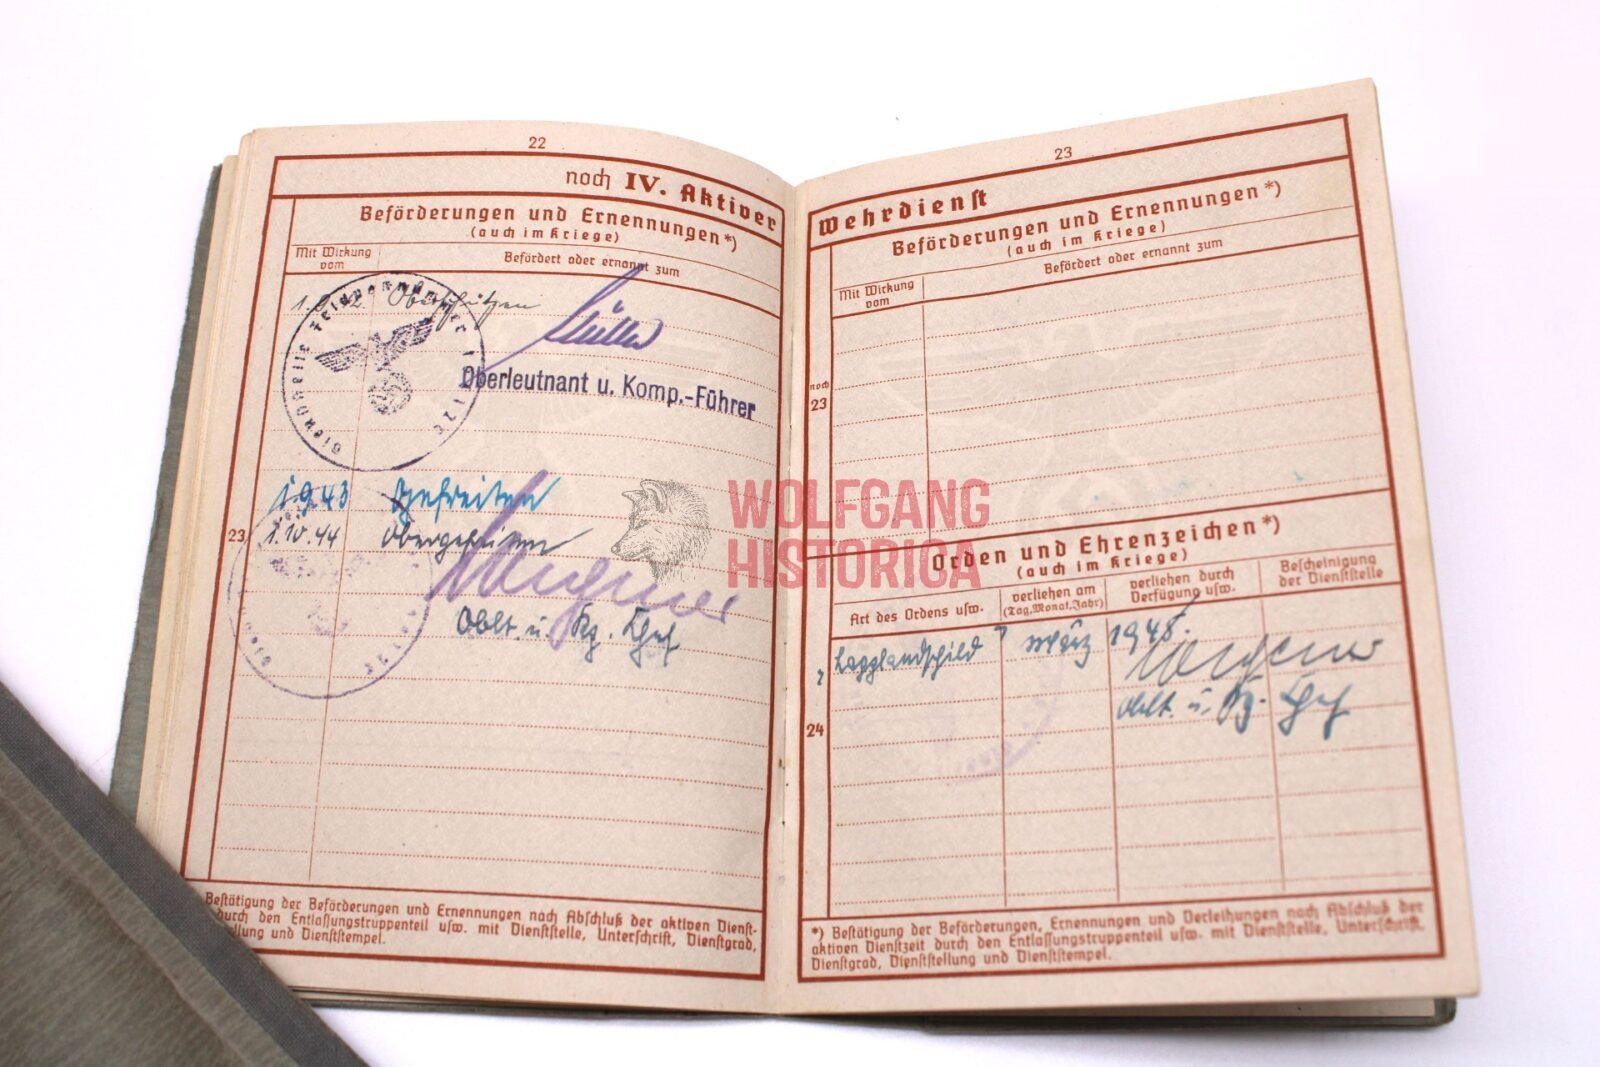 22
noch IV. Aktiver
Beförderungen und Ernennungen*)
(auch im Kriege)
Mit Wirkung
vom
Befördert oder ernannt zum
Oberschützen
Dienststelle Feldpostnummer
Oberleutnant u. Komp.-Führer
1.9.43 Gefreiten
23 1.10.44 Obergefreiten
Oblt. u. Kp. Chef
Bestätigung der Beförderungen und Ernennungen nach Abschluß der aktiven Dienst-
durch den Entlassungstruppenteil usw. mit Dienststelle, Unterschrift, Dienstgrad,
llung und Dienststempel.
23
Wehrdienst
Beförderungen und Ernennungen*)
(auch im Kriege)
Mit Wirkung
vom
Befördert oder ernannt zum
noch
23
WOLFGANG
HISTORICA
Orden und Ehrenzeichen*)
(auch im Kriege)
Art des Ordens usw.
verliehen am
(Tag, Monat, Jahr)
verliehen durch
Verfügung usw.
Bescheinigung
der Dienststelle
Lapplandschild März 1945.
Oblt. u. Kp. Chef
24
*) Bestätigung der Beförderungen, Ernennungen und Verleihungen nach Abschluß der
aktiven Dienstzeit durch den Entlassungstruppenteil usw. mit Dienststelle, Unterschrift,
Dienstgrad, Dienststellung und Dienststempel.